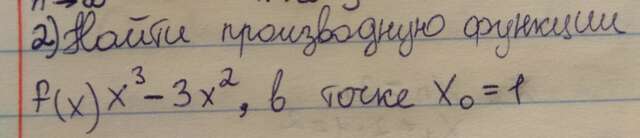 2) Найти производную функции
f(x) x³ - 3x², в точке x₀ = 1